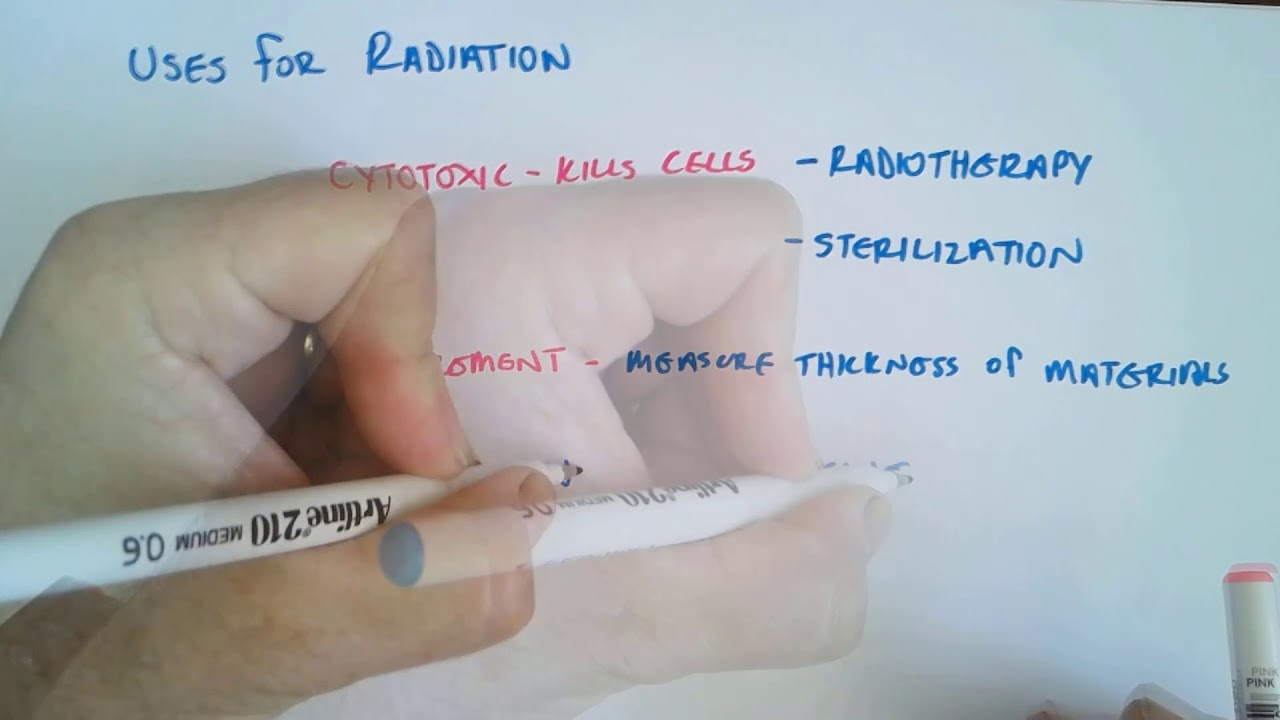 USES FOR RADIATION
CYTOTOXIC - KILLS CELLS - RADIOTHERAPY
- STERILIZATION
- MEASURE THICKNESS OF MATERIALS
Artline 210 MEDIUM 0.6
PINK
PINK